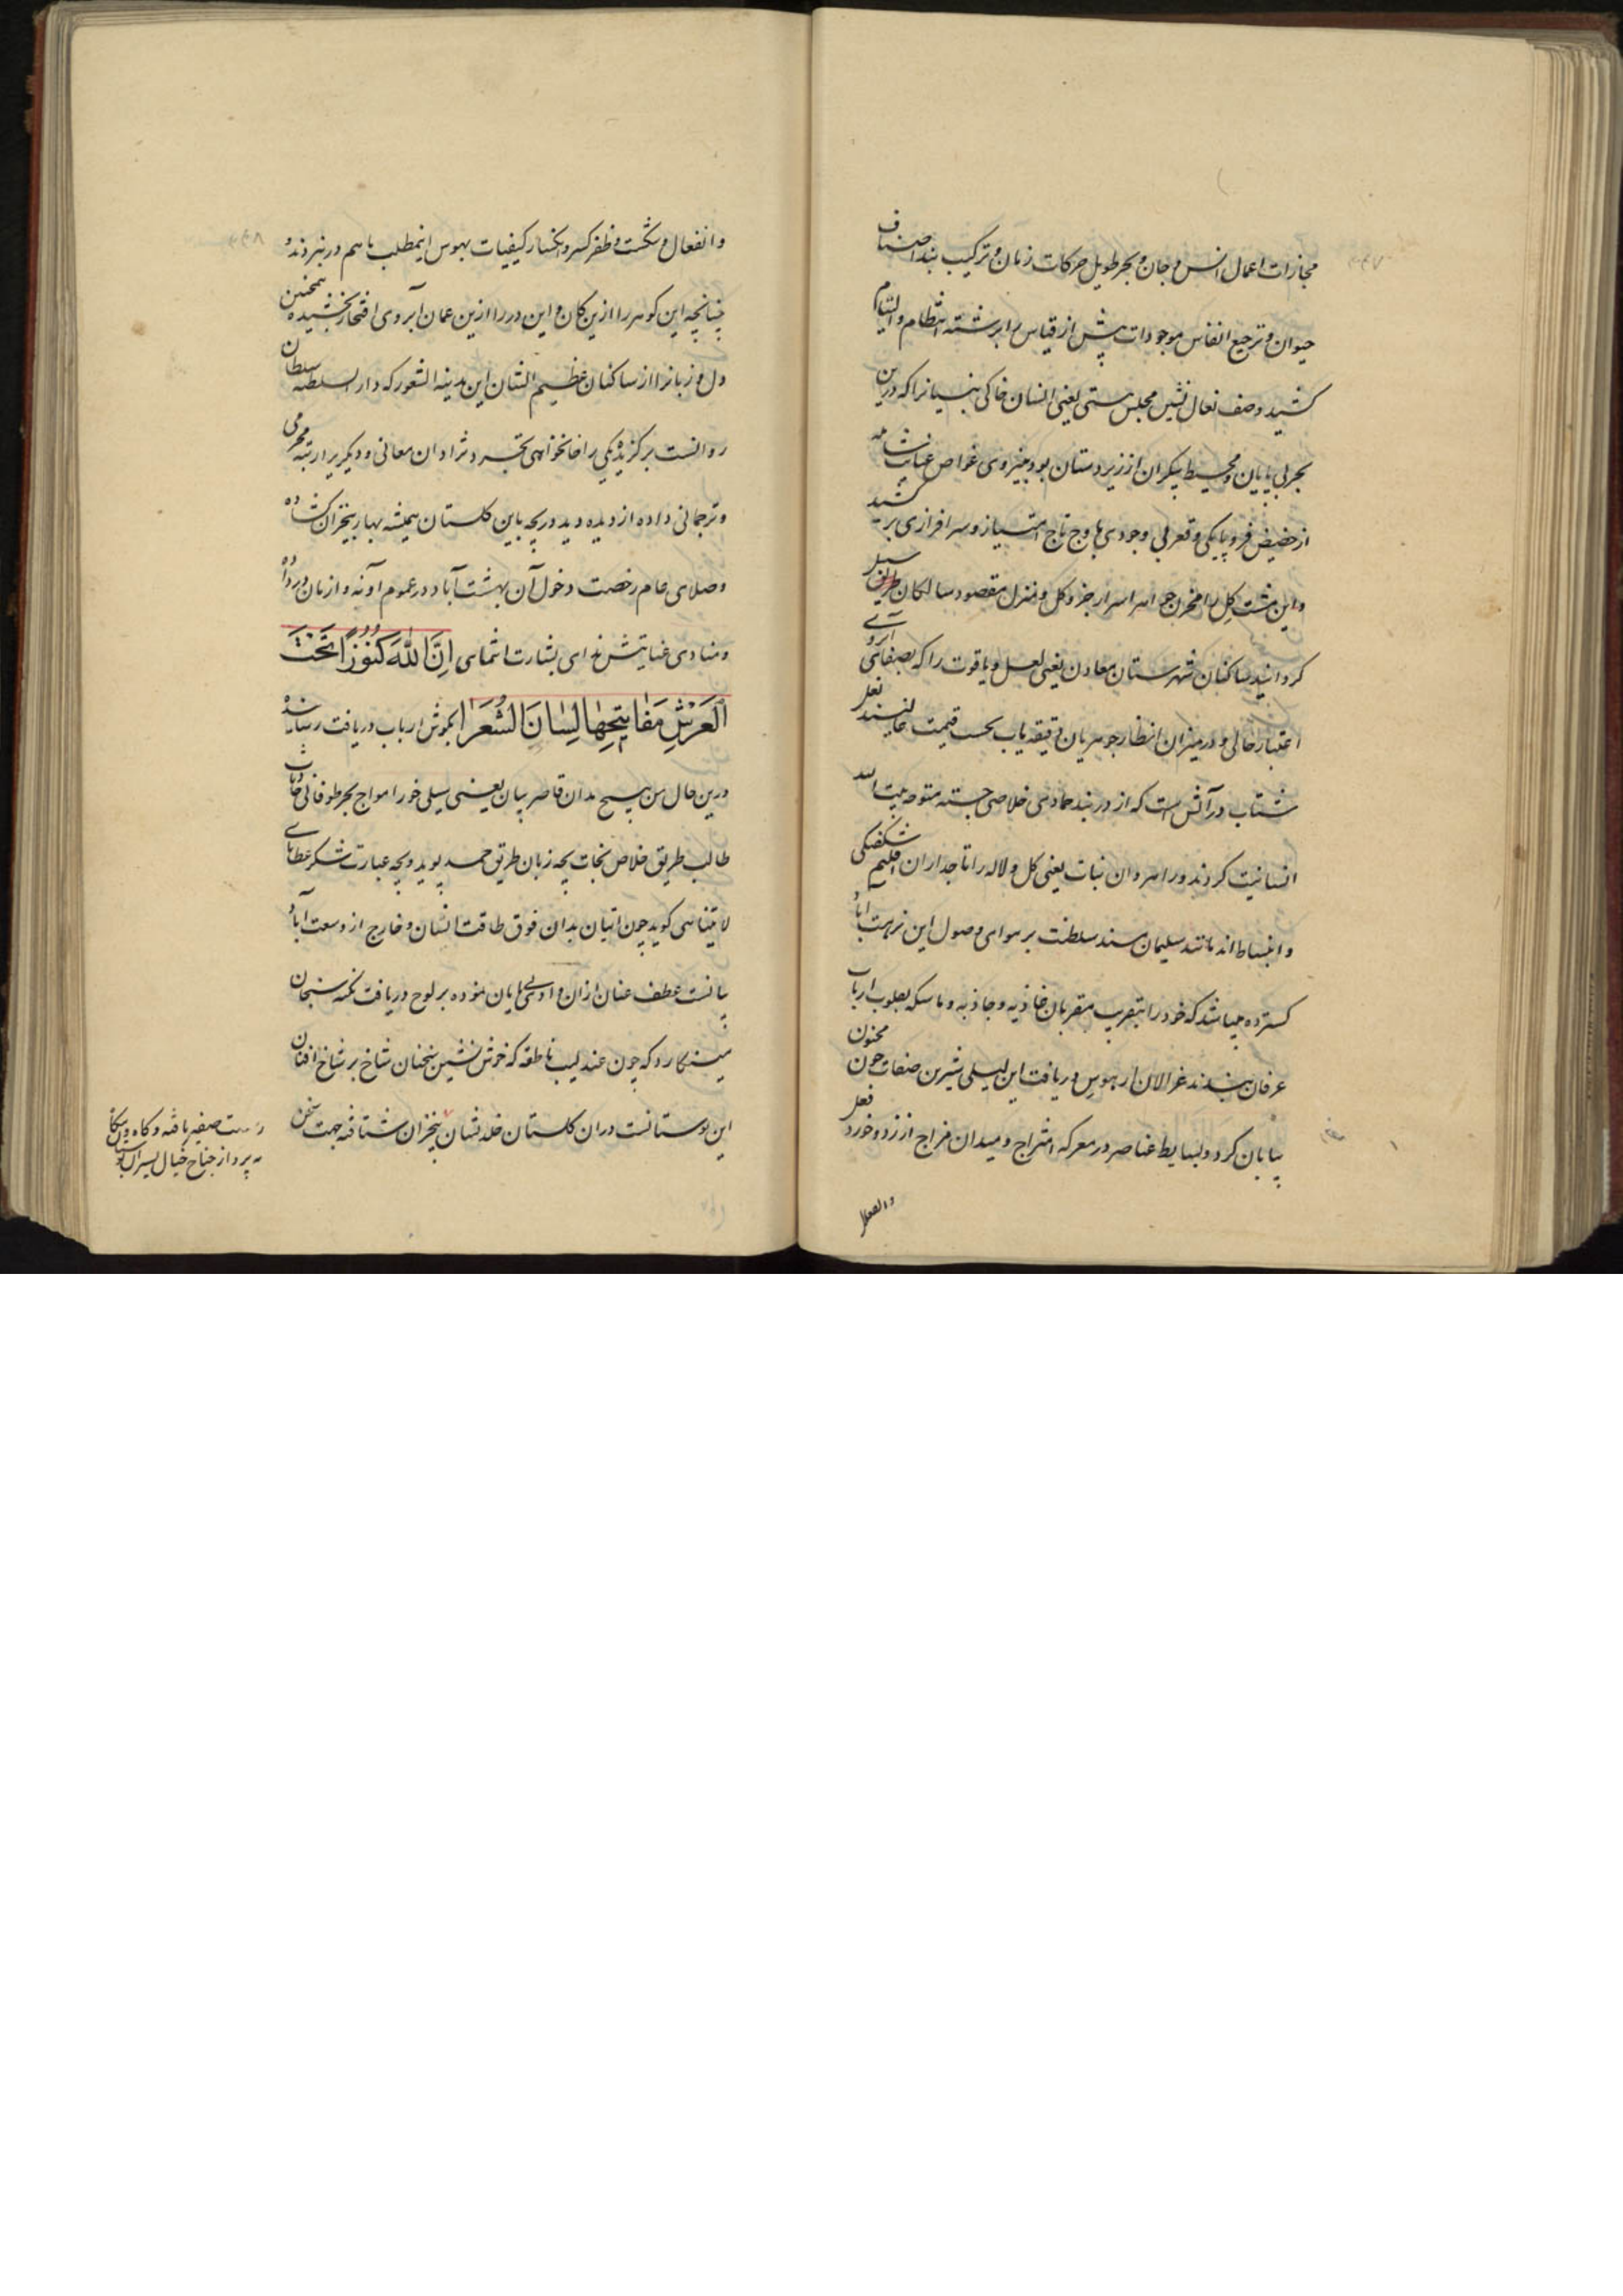 مجازات اعمال انس و جان و بحر طویل حرکات زمان و ترکیب بند اصناف
حیوان و ترجیع انفاس موجودات پیش از قیاس را برشته انتظام والتیام
کشید وصف نعال نشین مجلس هستی یعنی انسان خاکی بنیانرا که درین
بحر بی پایان و محیط بیکران از زیردستان بود به نیروی غواص عنایت
از حضیض فرو پایکی و قعر بی وجودی باوج تاج امتیاز و سرافرازی بر کشید
و این مشت کل را مخزن جواهر اسرار جز و کل و منزل مقصود سالکان طریق سبل
کردانید ساکنان شهرستان معادن یعنی لعل و یاقوت را که بصفای آبروی
اعتبار خالی و در میزان انظار جوهریان دقیقه یاب بحسب قیمت عالیند نعل
شتاب در آتش است که از در بند جمادی خلاصی جسته متوجه بیت الله
انسانیت کردند و راهروان نبات یعنی کل و لاله را تاجداران اقلیم شکفتکی
و انبساط اند مانند سلیمان مسند سلطنت بر هوای وصول این نزهت آباد
کسترده میباشد که خود را بتقریب مقربان غاذیه و جاذبه و ماسکه بقلوب ارباب
عرفان رسانند غزالان را هوس دریافت این لیلی شیرین صفات چون مجنون
بیابان کرد و بسایط عناصر در معرکه امتزاج و میدان مزاج از زد و خورد فعل
وانفعال
و انفعال و شکست و ظفر کسر و انکسار کیفیات بهوس اینمطلب باهم در نبردند و
چنانچه این کوهر را ازین کان و این در را ازین عمان آبروی افتخار بخشیده همچنین
دل و زبانرا از ساکنان عظیم الشان این مدینه الشعور که دار السلطنه سلطان
روانست برکزیده یکی را خانخواهی تجرد نژادان معانی و دیکریرا رتبه محرمی
و ترجمانی داده از دیده دید دریچه باین کلستان همیشه بهار بیخزان کشاده
و صلای عام رخصت دخول آن بهشت آباد در عموم آونه و ازمان در داده
و منادی عنایتش ندای بشارت انتمای اِنَّ اللهَ کُنُوزًا تَحْتَ
الْعَرْشِ مَفَاتِیحُهَا لِسَانَ الشُّعَرَا بکوش ارباب دریافت رسانیده
درین حال من هیچ مدان قاصر بیان یعنی سیلی خور امواج بحر طوفانی
طالب طریق خلاص نجات بچه زبان طریق حمد پوید و بچه عبارت شکر عطایای
لا یتناهی کوید چون اتیان بدان فوق طاقت انسان و خارج از وسعت آباد
بیانست عطف عنان ازان وادی بی پایان نموده بر لوح دریافت نکته سنجان
مینکارد که چون عندلیب ناطقه که خوش نشین سخنان شاخ بر شاخ افنان
این بوستانست دران کلستان خلد نشان بیخزان شتافته جهت سخن